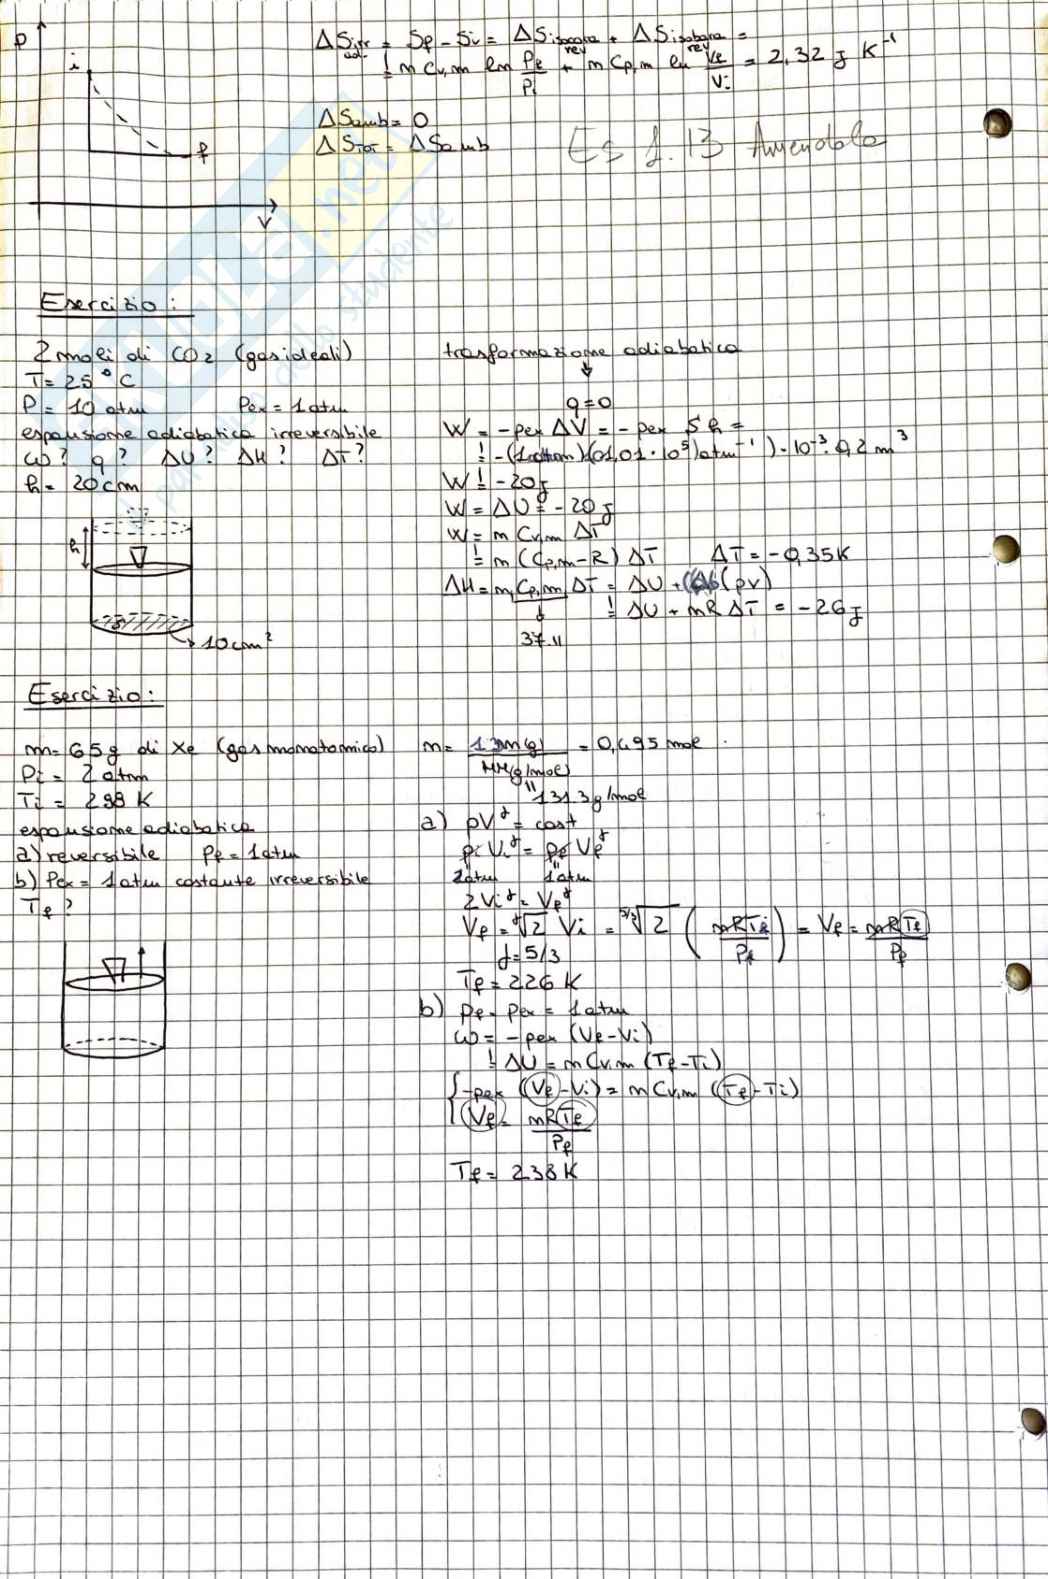 P
i
f
V
ΔSirr ad. = Sf - Si = ΔSisocora rev + ΔSisobara rev =
! n Cv,m ln Pf/Pi + n Cp,m ln Vf/Vi = 2,32 J K⁻¹
ΔSamb = 0
ΔSTOT = ΔSamb
Es 1.13 Amendola
Esercizio:
2 moli di CO2 (gas ideali)
T = 25 °C
P = 10 atm Pex = 1 atm
espansione adiabatica irreversibile
ω? q? ΔU? ΔH? ΔT?
h = 20 cm
h
10 cm²
trasformazione adiabatica
↓
q = 0
W = -pex ΔV = -pex S h =
! -(1 atm)(1,01·10⁵) atm⁻¹)·10⁻³·0,2 m³
W ! -20 J
W = ΔU = -20 J
W = n Cv,m ΔT
! n (Cp,m - R) ΔT ΔT = -0,35 K
ΔH = n Cp,m ΔT = ΔU + (pV)
! ΔU + nRΔT = -26 J
37.11
Esercizio:
m = 65 g di Xe (gas monatomico)
Pi = 2 atm
Ti = 298 K
espansione adiabatica
a) reversibile Pf = 1 atm
b) Pex = 1 atm costante irreversibile
Tf?
n = m(g) / MM(g/mol) = 0,495 mol
131.3 g/mol
a) pV^γ = cost
pi Vi^γ = pf Vf^γ
2 atm 1 atm
2Vi^γ = Vf^γ
Vf = ^γ√2 Vi = ^5/3√2 (nRTi/Pi) = Vf = nRTf/Pf
γ = 5/3
Tf = 226 K
b) pf = pex = 1 atm
ω = -pex (Vf - Vi)
! ΔU = n Cv,m (Tf - Ti)
{ -pex (Vf - Vi) = n Cv,m (Tf - Ti)
Vf = nRTf/Pf
Tf = 238 K